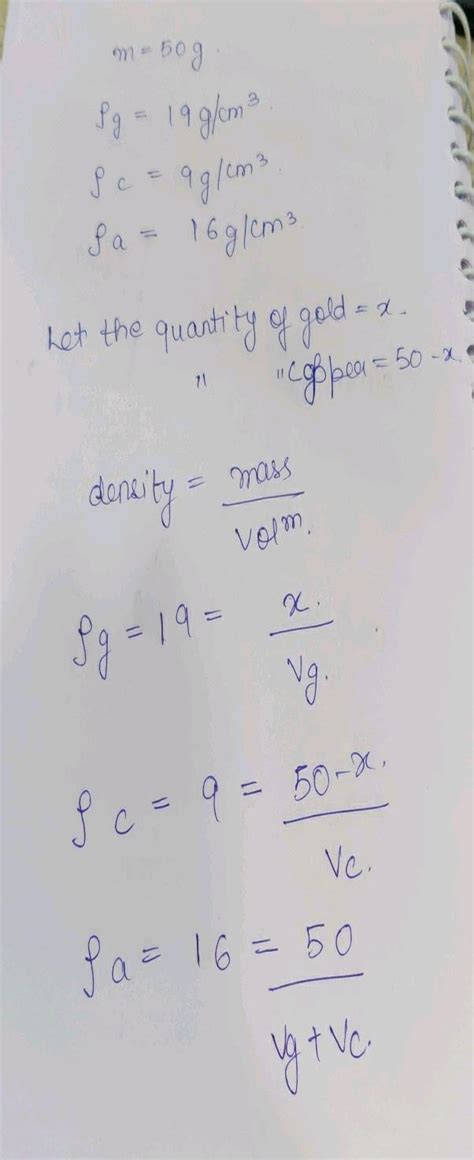 m = 50g.
ρg = 19g/cm³.
ρc = 9g/cm³
ρa = 16g/cm³
Let the quantity of gold = x.
" " Copper = 50-x.
density = mass / Volm.
ρg = 19 = x. / Vg.
ρc = 9 = 50-x. / Vc.
ρa = 16 = 50 / Vg + Vc.